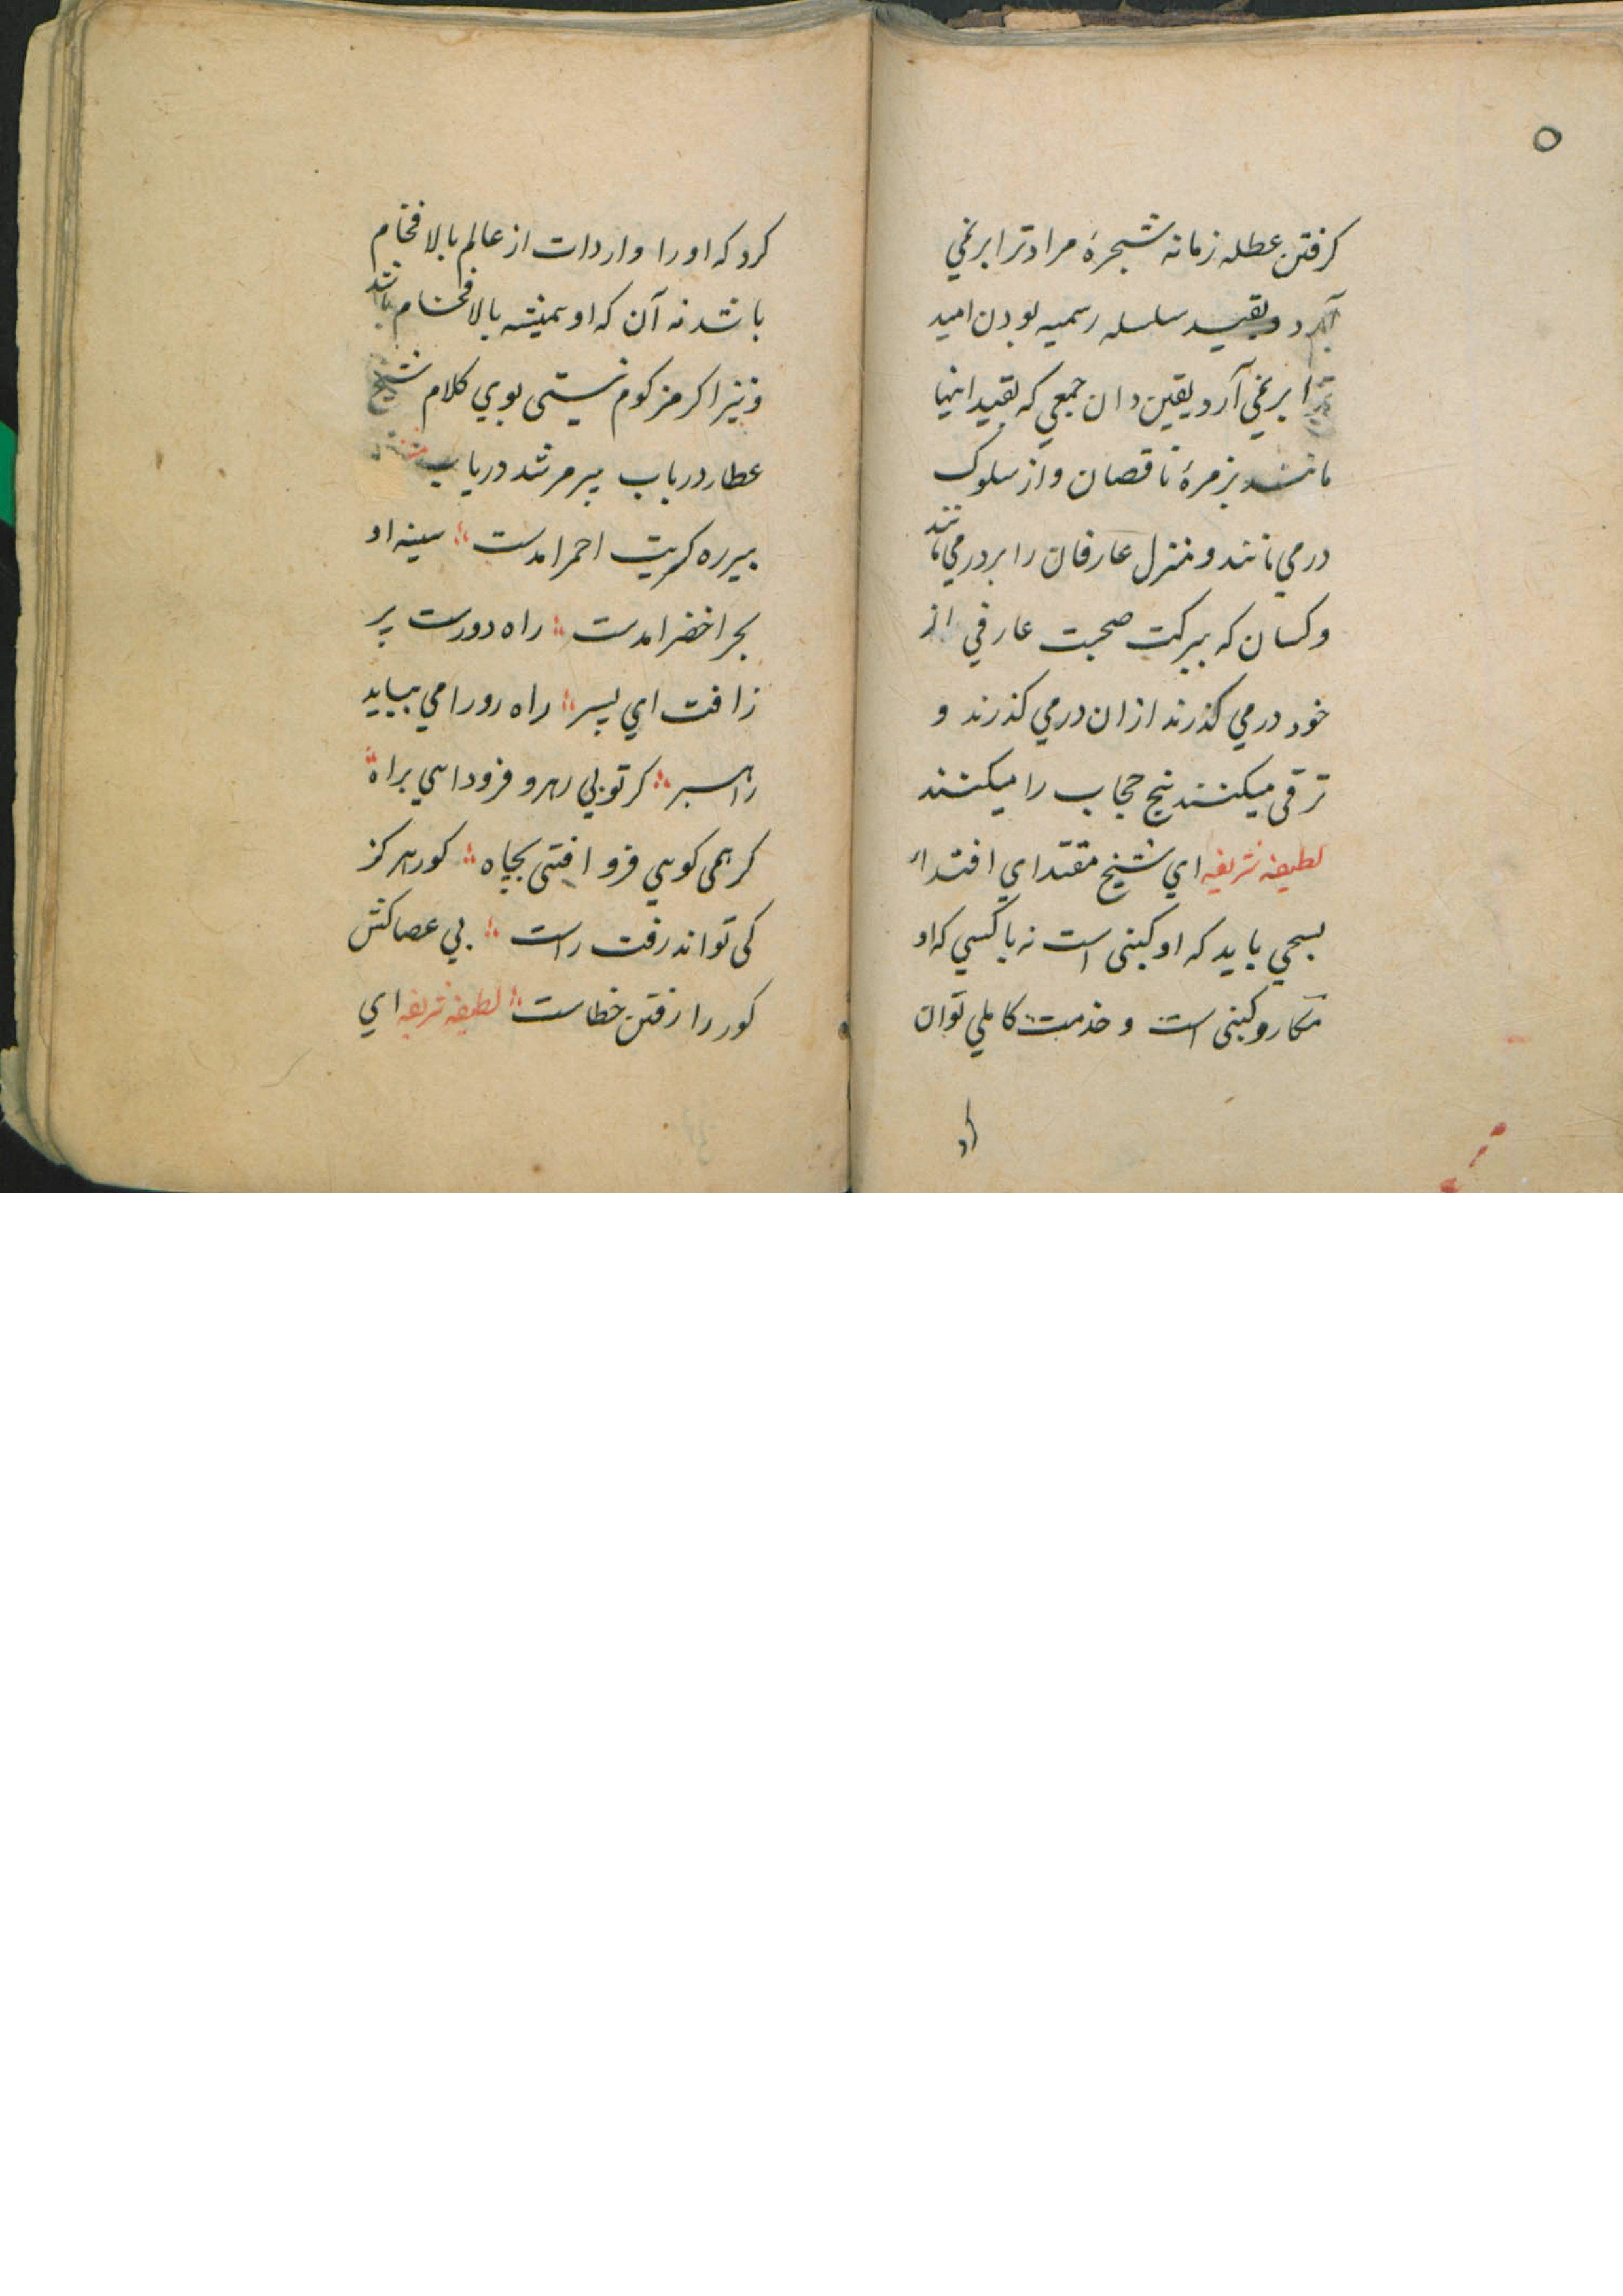 ۵
کرفتن عطله زمانه شجرهٔ مراد ترا بر نمي
آرد و بقید سلسله رسمیه بودن امید
ترا بر نمي آرد یقین دان جمعي که بقید اینها
مانند بزمرهٔ ناقصان و از سلوک
در مي مانند و منزل عارفان را بر در مي مانند
و کسان که ببرکت صحبت عارفي از
خود در مي کذرند ازان در مي کذرند و
ترقی میکنند بیخ حجاب را میکنند
لطیفه شریفه اي شیخ مقتداي اقتداء
بسحي باید که او کبنی است نه باکسي که او
مکار و کبنی است و خدمت کاملي توان
کرد
کرد که او را واردات از عالم بالا فخام
باشد نه آن که او بمنیشه بالا فخام باشد
و نیز اکر مزکوم نیستی بوي کلام شیخ
عطار در باب پیر مرشد دریاب
پیر ره کبریت احمر امدست سینه او
بحر اخضر امدست راه دورست پر
ز افت اي پسر راه رو را مي بباید
راهبر کر تو بي رهرو فرود ایي براه
کر همی کوهي فرو افتی بچاه کور هرکز
کی تواند رفت راست بي عصاکش
کور را رفتن خطاست لطیفه شریفه اي